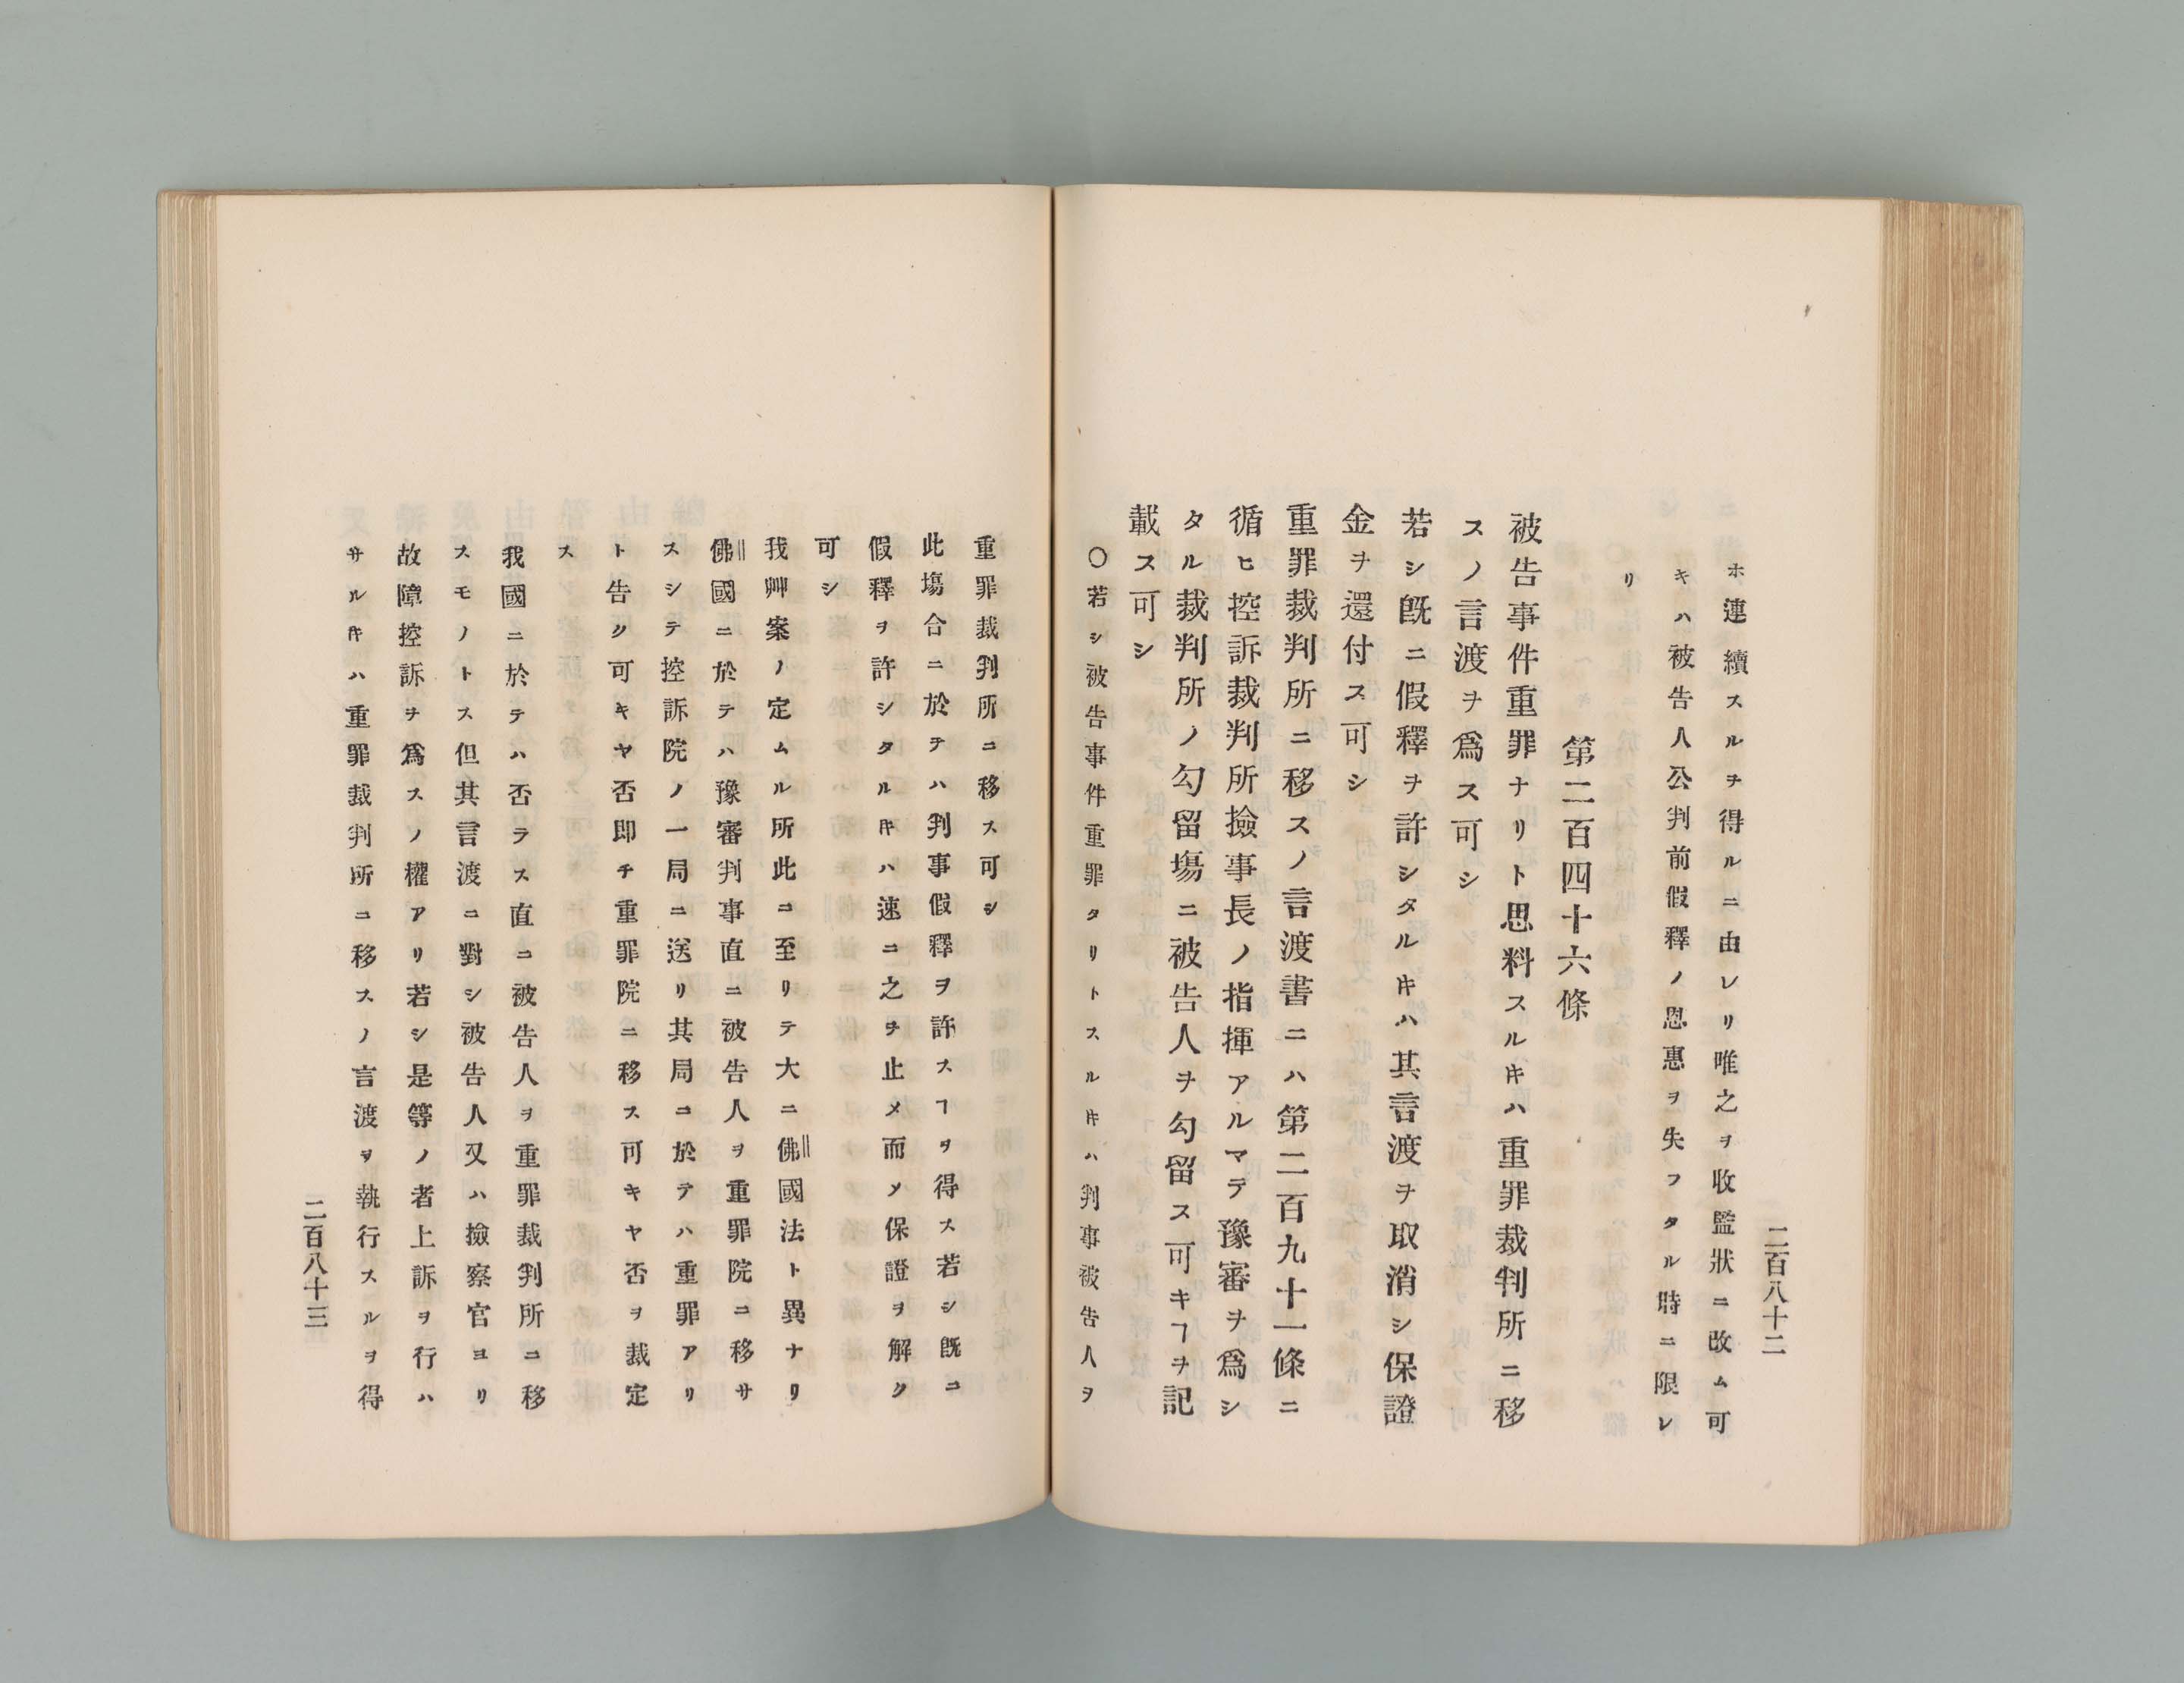 二百八十二
ホ連續スルヲ得ルニ由レリ唯之ヲ收監狀ニ改ム可
キハ被告人公判前假釋ノ恩惠ヲ失フタル時ニ限レ
リ
第二百四十六條
被告事件重罪ナリト思料スルキハ重罪裁判所ニ移
スノ言渡ヲ爲ス可シ
若シ旣ニ假釋ヲ許シタルキハ其言渡ヲ取消シ保證
金ヲ還付ス可シ
重罪裁判所ニ移スノ言渡書ニハ第二百九十一條ニ
循ヒ控訴裁判所撿事長ノ指揮アルマテ豫審ヲ爲シ
タル裁判所ノ勾留塲ニ被告人ヲ勾留ス可キヿヲ記
載ス可シ
〇若シ被告事件重罪タリトスルキハ判事被告人ヲ
重罪裁判所ニ移ス可シ
此塲合ニ於テハ判事假釋ヲ許スヿヲ得ス若シ旣ニ
假釋ヲ許シタルキハ速ニ之ヲ止メ而メ保證ヲ解ク
可シ
我艸案ノ定ムル所此ニ至リテ大ニ佛國法ト異ナリ
佛國ニ於テハ豫審判事直ニ被告人ヲ重罪院ニ移サ
スシテ控訴院ノ一局ニ送リ其局ニ於テハ重罪アリ
ト告ク可キヤ否即チ重罪院ニ移ス可キヤ否ヲ裁定
ス
我國ニ於テハ否ラス直ニ被告人ヲ重罪裁判所ニ移
スモノトス但其言渡ニ對シ被告人又ハ撿察官ヨリ
故障控訴ヲ爲スノ權アリ若シ是等ノ者上訴ヲ行ハ
サルキハ重罪裁判所ニ移スノ言渡ヲ執行スルヲ得
二百八十三